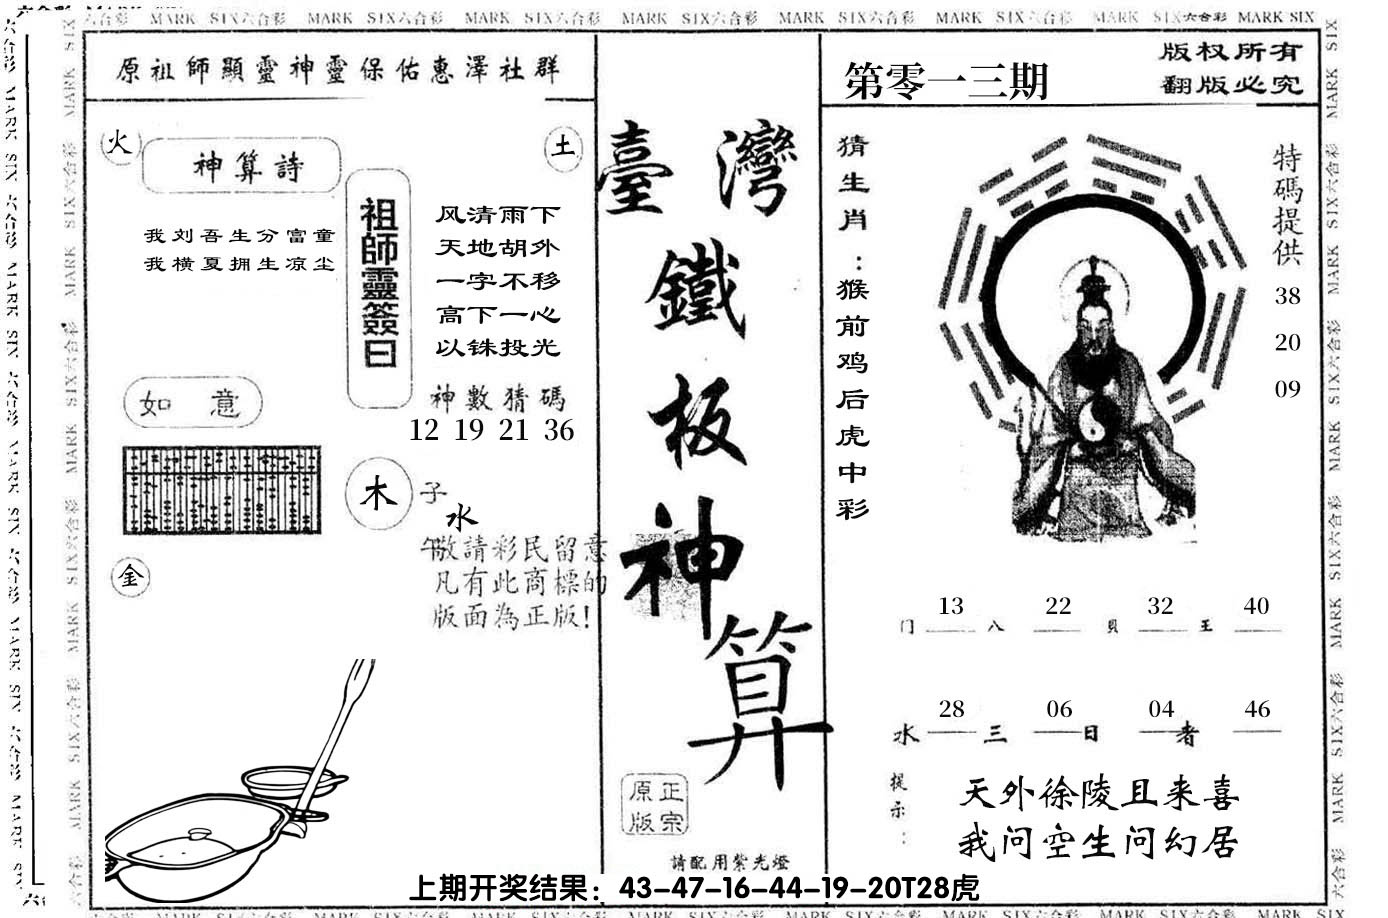 MARK SIX六合彩 MARK SIX六合彩 MARK SIX六合彩 MARK SIX六合彩 MARK SIX六合彩 MARK SIX六合彩 MARK SIX六合彩 MARK SIX
原祖師顯靈神靈保佑惠澤社群
火
土
神算詩
我刘吾生分富童
我横夏拥生凉尘
祖師靈簽曰
风清雨下
天地胡外
一字不移
高下一心
以铢投光
神數猜碼
12 19 21 36
如意
木
子
水
午
金
敬請彩民留意
凡有此商標的
版面為正版!
臺灣
鐵
板
神
算
原正
版宗
請配用紫光燈
第零一三期
版权所有
翻版必究
猜生肖：猴前鸡后虎中彩
特碼提供
38
20
09
门 13 八 22 贝 32 王 40
水 28 三 06 日 04 者 46
提示：
天外徐陵且来喜
我问空生问幻居
上期开奖结果：43-47-16-44-19-20T28虎